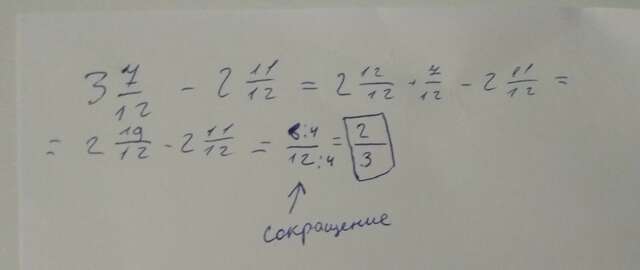 3 7/12 - 2 11/12 = 2 12/12 + 7/12 - 2 11/12 =
= 2 19/12 - 2 11/12 = 8:4/12:4 = 2/3
сокращение